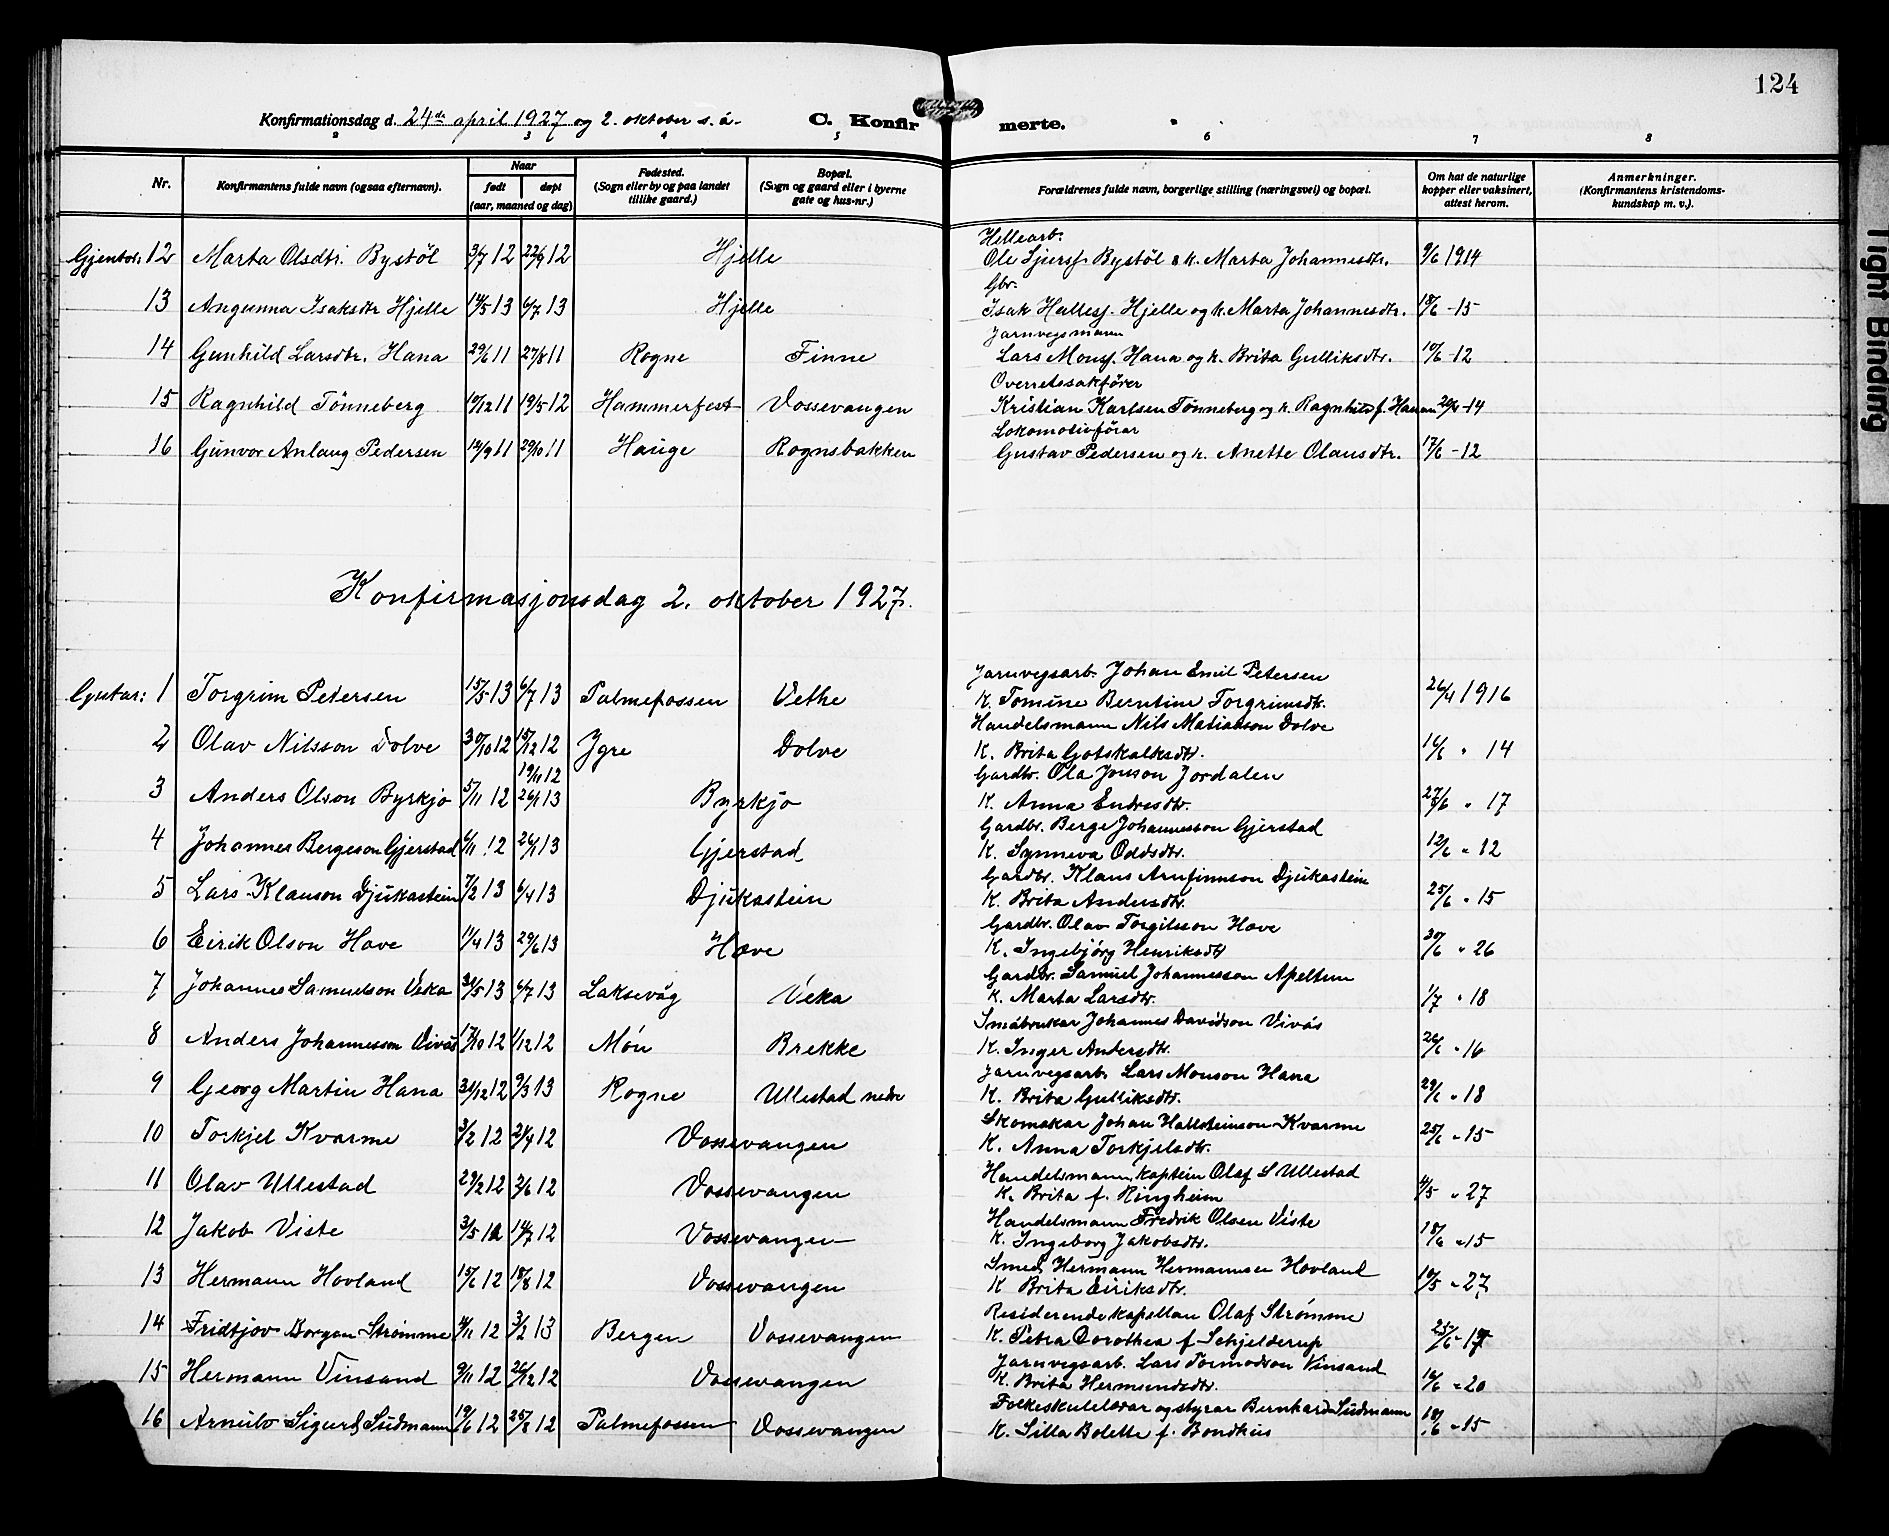 124
Konfirmationsdag d. 24de april 1927 og 2. oktober s. å. C. Konfir merte.
2 3 4 5 6 7 8
Nr. Konfirmantens fulde navn (ogsaa efternavn). Naar født døpt (aar, maaned og dag) Fødested. (Sogn eller by og paa landet tillike gaard.) Bopæl. (Sogn og gaard eller i byerne gate og hus-nr.) Forældrenes fulde navn, borgerlige stilling (næringsvei) og bopæl. Om hat de naturlige kopper eller vaksinert, attest herom. Anmerkninger. (Konfirmantens kristendoms-kundskap m. v.).
Hellearb.
Gjentor: 12 Marta Olsdtr. Bystöl 3/7 12 22/9 12 Hjelle Ole Sjurss. Bystöl & k. Marta Johannesdtr. 9/6 1914
Gbr.
13 Angunna Isaksdtr Hjelle 14/5 13 6/7 13 Hjelle Isak Halless. Hjelle og k. Marta Johannesdtr. 18/6 -15
Jarnvegsmann
14 Gunhild Larsdtr. Hana 29/6 11 27/8 11 Rogne Finne Lars Monss. Hana og k. Brita Gulliksdtr. 10/6 -12
Overretssakfører
15 Ragnhild Tönneberg 19/12 11 19/5 12 Hammerfest Vossevangen Kristian Karlsen Tönneberg og k. Ragnhild f. -14
Lokomotivförar
16 Gunvor Anlaug Pedersen 14/9 11 29/10 11 Hauge Rognsbakken Gustav Pedersen og k. Anette Olausdtr. 17/6 -12
Konfirmasjonsdag 2. oktober 1927.
Jarnvegsarb. Johan Emil Petersen
Gutar: 1 Torgrim Petersen 15/5 13 6/7 13 Palmefossen Vethe K. Tomine Berntine Torgrimsdtr. 26/4 1916
Handelsmann Nils Matiasson Dolve
2 Olav Nilsson Dolve 30/10 12 15/12 12 Ygre Dolve K. Brita Gotskalksdtr. 16/6 " 14
19/11 12 Gardbr. Ola Jonson Jordalen
3 Anders Olson Byrkjo 5/11 12 26/1 13 Byrkjo K. Anna Endresdtr. 27/6 " 17
Gardbr. Berge Johannesson Gjerstad
4 Johannes Bergeson Gjerstad 6/11 12 26/1 13 Gjerstad K. Synneva Oddsdtr. 12/6 " 12
Gardbr. Klaus Arnfinnson Djukastein
5 Lars Klauson Djukastein 7/2 13 6/4 13 Djukastein K. Brita Andersdtr. 25/6 " 15
Gardbr. Olav Torgilsson Hove
6 Eirik Olson Hove 11/4 13 29/6 13 Hove K. Ingebjörg Henriksdtr 30/6 " 26
Gardbr. Samuel Johannesson Apeltun
7 Johannes Samuelson Veka 31/5 13 6/7 13 Laksevåg Veka K. Marta Larsdtr. 1/7 " 18
Småbrukar Johannes Davidson Vivås
8 Anders Johannesson Vivås 17/10 12 1/12 12 Món Brekke K. Inger Andersdtr. 26/6 " 16
Jarnvegsarb. Lars Monson Hana
9 Georg Martin Hana 31/12 12 9/3 13 Rogne Ullestad nedre K. Brita Gulliksdtr. 29/6 " 18
Skomakar Johan Hallsteinson Kvarme
10 Torkjel Kvarme 3/2 12 21/4 12 Vossevangen K. Anna Torkjelsdtr. 25/6 " 15
Handelsmann, kaptein Olaf S Ullestad
11 Olav Ullestad 29/2 12 2/6 12 Vossevangen K. Brita f. Ringheim 4/5 " 27
Handelsmann Fredrik Olsen Viste
12 Jakob Viste 3/5 12 14/7 12 Vossevangen K. Ingeborg Jakobsdtr. 18/6 " 15
Smed Hermann Hermannsen Hovland
13 Hermann Hovland 15/6 12 18/8 12 Vossevangen K Brita Eiriksdtr. 10/5 " 27
Residerende kapellan Olaf Strømme
14 Fridtjov Borgen Strømme 4/11 12 3/2 13 Bergen Vossevangen K. Petra Dorothea f Schjelderup 25/6 -17
Jarnvegsarb. Lars Tormodson Vinsand
15 Hermann Vinsand 9/11 12 26/12 12 Vossevangen K. Brita Hermundsdtr. 16/6 " 20
Folkeskulelærar og styrar Bernhard Sudmann
16 Arnulv Sigurd Sudmann 19/6 12 25/8 12 Palmefossen Vossevangen K. Silla Bolette f. Bondhus 18/6 " 15
Tight Binding